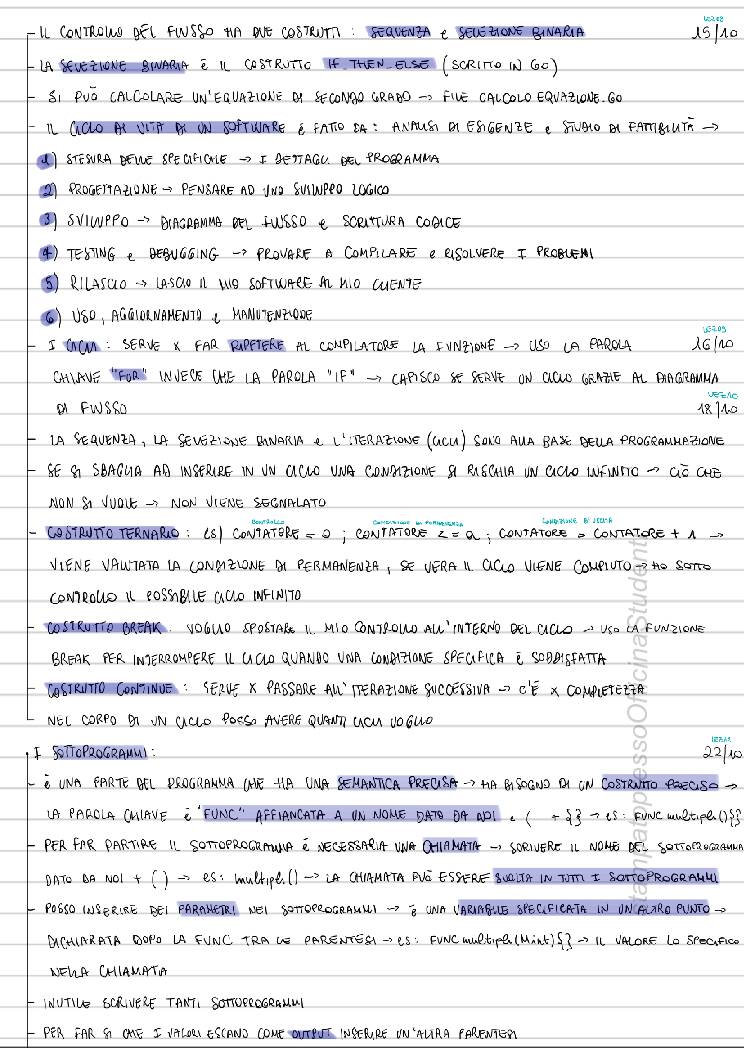 - IL CONTROLLO DEL FLUSSO HA DUE COSTRUTTI : SEQUENZA e SELEZIONE BINARIA
LEZ08
15/10
- LA SELEZIONE BINARIA È IL COSTRUTTO IF_THEN_ELSE (SCRITTO IN GO)
- SI PUÒ CALCOLARE UN'EQUAZIONE DI SECONDO GRADO → FILE CALCOLO EQUAZIONE.GO
- IL CICLO DI VITA DI UN SOFTWARE È FATTO DA : ANALISI DI ESIGENZE e STUDIO DI FATTIBILITÀ →
1) STESURA DELLE SPECIFICHE → I DETTAGLI DEL PROGRAMMA
2) PROGETTAZIONE → PENSARE AD UNO SVILUPPO LOGICO
3) SVILUPPO → DIAGRAMMA DEL FLUSSO e SCRITTURA CODICE
4) TESTING e DEBUGGING → PROVARE A COMPILARE e RISOLVERE I PROBLEMI
5) RILASCIO → LASCIO IL MIO SOFTWARE AL MIO CLIENTE
6) USO, AGGIORNAMENTO e MANUTENZIONE
- I CICLI : SERVE X FAR RIPETERE AL COMPILATORE LA FUNZIONE → USO LA PAROLA
LEZ09
16/10
CHIAVE "FOR" INVECE CHE LA PAROLA "IF" → CAPISCO SE SERVE UN CICLO GRAZIE AL DIAGRAMMA
DI FLUSSO
LEZ10
18/10
- LA SEQUENZA, LA SELEZIONE BINARIA e L'ITERAZIONE (CICLI) SONO ALLA BASE DELLA PROGRAMMAZIONE
- SE SI SBAGLIA AD INSERIRE IN UN CICLO UNA CONDIZIONE SI RISCHIA UN CICLO INFINITO → CIÒ CHE
NON SI VUOLE → NON VIENE SEGNALATO
CONTROLLO CONDIZIONE DI PERMANENZA CONDIZIONE DI USCITA
- COSTRUTTO TERNARIO : ES) CONTATORE = 0 ; CONTATORE <= a ; CONTATORE = CONTATORE + 1 →
VIENE VALUTATA LA CONDIZIONE DI PERMANENZA, SE VERA IL CICLO VIENE COMPIUTO → HO SOTTO
CONTROLLO IL POSSIBILE CICLO INFINITO
- COSTRUTTO BREAK : VOGLIO SPOSTARE IL MIO CONTROLLO ALL'INTERNO DEL CICLO → USO LA FUNZIONE
BREAK PER INTERROMPERE IL CICLO QUANDO UNA CONDIZIONE SPECIFICA È SODDISFATTA
- COSTRUTTO CONTINUE : SERVE X PASSARE ALL'ITERAZIONE SUCCESSIVA → C'È X COMPLETEZZA
- NEL CORPO DI UN CICLO POSSO AVERE QUANTI CICLI VOGLIO
• I SOTTOPROGRAMMI :
LEZ11
22/10
- È UNA PARTE DEL PROGRAMMA CHE HA UNA SEMANTICA PRECISA → HA BISOGNO DI UN COSTRUTTO PRECISO →
LA PAROLA CHIAVE È "FUNC" AFFIANCATA A UN NOME DATO DA NOI e ( + {} → es : FUNC multipli(){}
- PER FAR PARTIRE IL SOTTOPROGRAMMA È NECESSARIA UNA CHIAMATA → SCRIVERE IL NOME DEL SOTTOPROGRAMMA
DATO DA NOI + () → es : multipli() → LA CHIAMATA PUÒ ESSERE SVOLTA IN TUTTI I SOTTOPROGRAMMI
- POSSO INSERIRE DEI PARAMETRI NEI SOTTOPROGRAMMI → È UNA VARIABILE SPECIFICATA IN UN ALTRO PUNTO →
DICHIARATA DOPO LA FUNC TRA LE PARENTESI → es : FUNC multipli(M int){} → IL VALORE LO SPECIFICO
NELLA CHIAMATA
- INUTILE SCRIVERE TANTI SOTTOPROGRAMMI
- PER FAR SI CHE I VALORI ESCANO COME OUTPUT INSERIRE UN'ALTRA PARENTESI
stampatopressoOfficinaStudenti